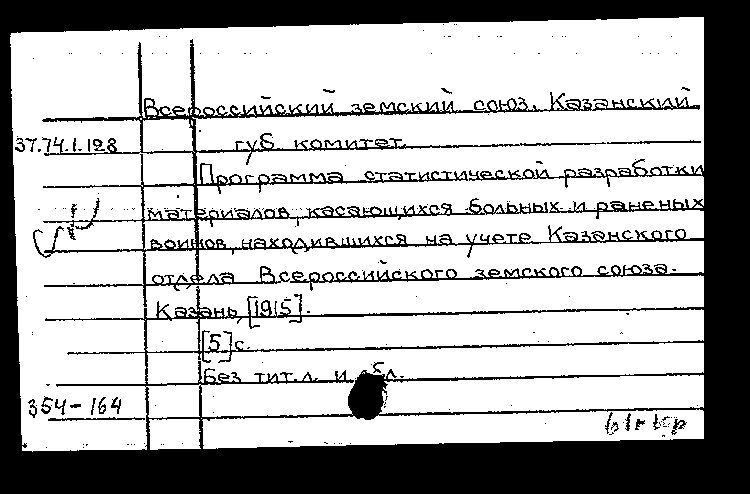 Всероссийский земский союз. Казанский
37.74.1.128 губ комитет.
Программа статистической разработки
материалов, касающихся больных и раненых
воинов, находившихся на учете Казанского
отдела Всероссийского земского союза.
Казань, [1915].
[5] с.
Без тит. л. и обл.
354-164